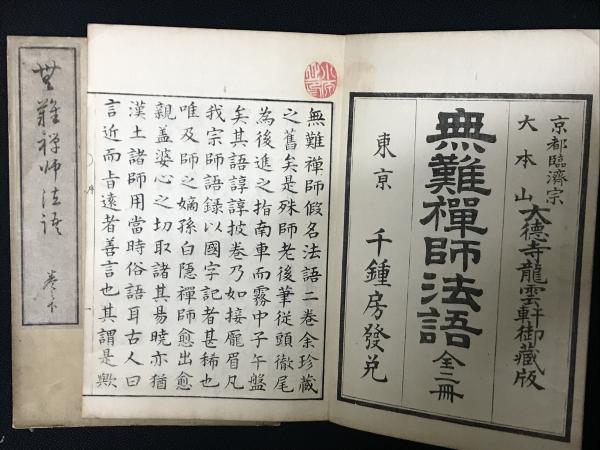 京都臨濟宗
大本山大德寺龍雲軒御藏版
無難禪師法語
全二冊
東京 千鍾房發兌
無難禪師假名法語二巻余珍藏
之舊矣是殊師老後筆従頭徹尾
為後進之指南車而霧中子午盤
矣其語諄諄披巻乃如接龐眉凡
我宗師語録以國字記者甚稀也
唯及師之嫡孫白隠禪師愈出愈
親盖婆心之切取諸其易暁亦猶
漢土諸師用當時俗語耳古人曰
言近而旨遠者善言也其謂是歟
序
無難禅师法語